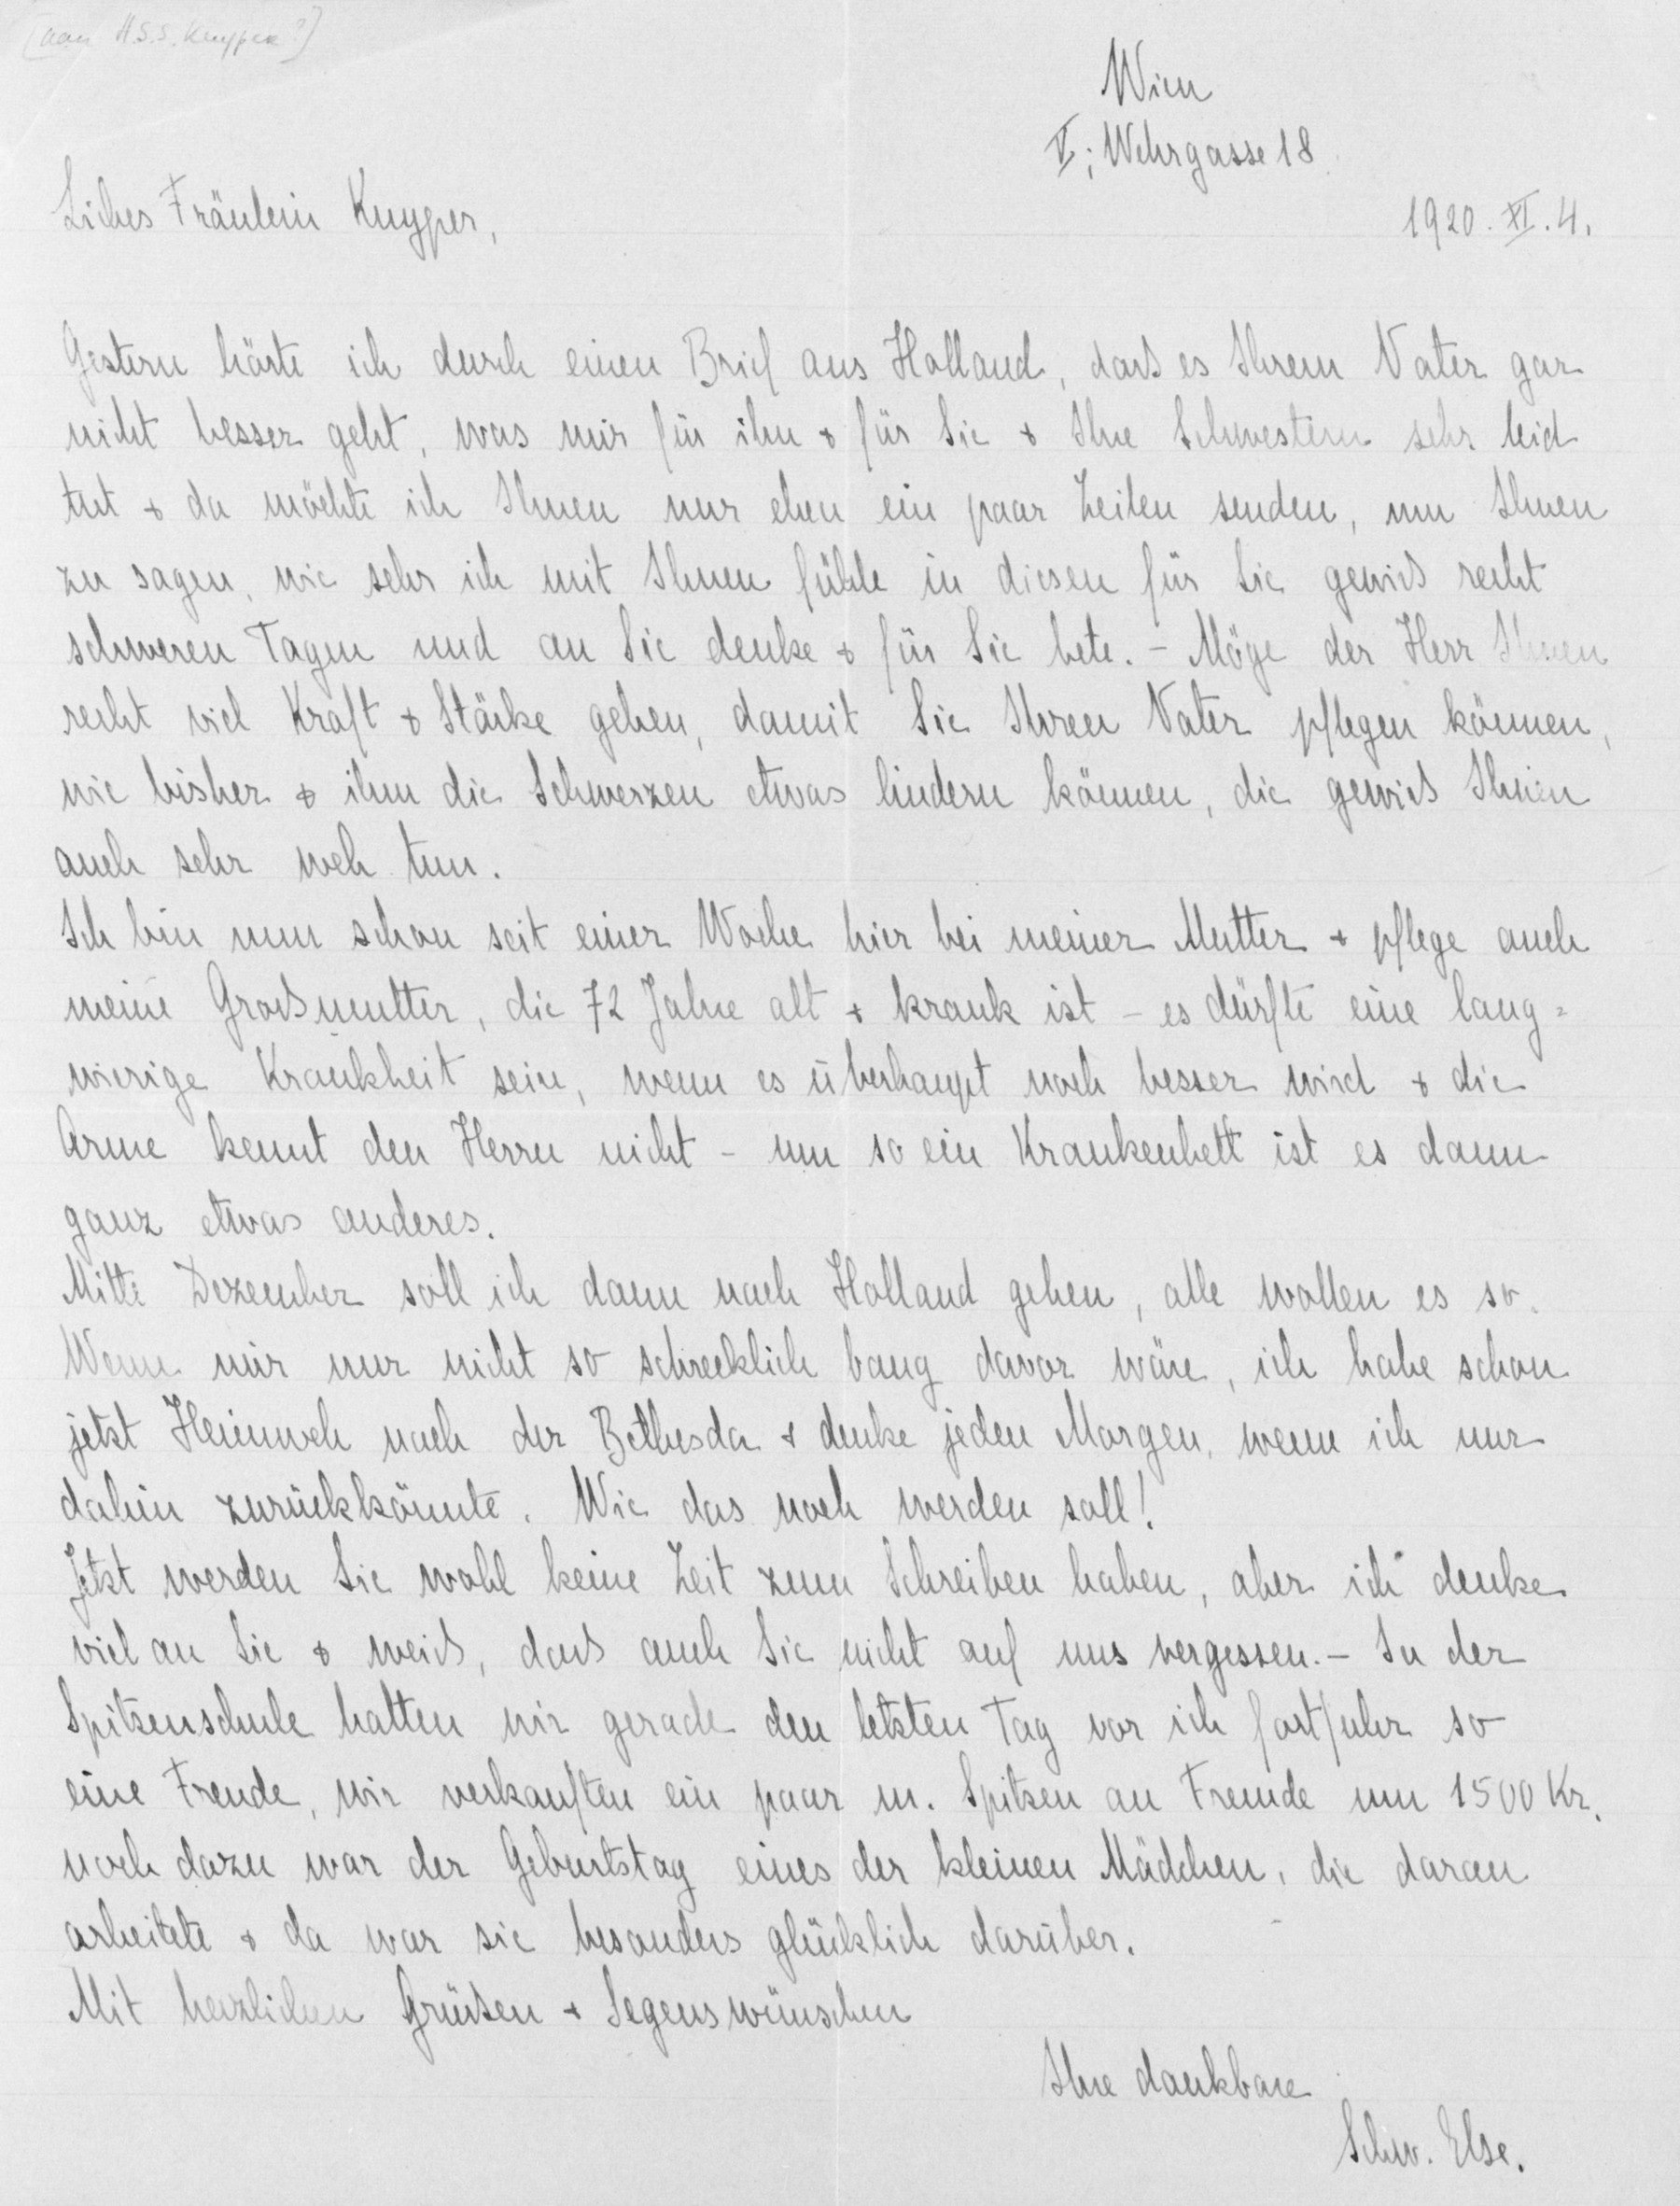 [aan H.S.S. Kuyper?]
Wien
V; Wehrgasse 18
Liebes Fräulein Kuyper,
1920. XI. 4.
Gestern hörte ich durch einen Brief aus Holland, dass es Ihrem Vater gar
nicht besser geht, was mir für ihn + für Sie + Ihre Schwestern sehr leid
tut + da möchte ich Ihnen nur eben ein paar Zeilen senden, um Ihnen
zu sagen, wie sehr ich mit Ihnen fühle in diesen für Sie gewiß recht
schweren Tagen und an Sie denke + für Sie bete. – Möge der Herr Ihnen
recht viel Kraft + Stärke geben, damit Sie Ihren Vater pflegen können,
wie bisher + ihm die Schmerzen etwas lindern können, die gewiß Ihnen
auch sehr weh tun.
Ich bin nun schon seit einer Woche hier bei meiner Mutter + pflege auch
meine Großmutter, die 72 Jahre alt + krank ist – es dürfte eine lang=
wierige Krankheit sein, wenn es überhaupt noch besser wird + die
Arme kennt den Herrn nicht – um so ein Krankenbett ist es dann
ganz etwas anderes.
Mitte Dezember soll ich dann nach Holland gehen, alle wollen es so.
Wenn mir nur nicht so schrecklich bang davor wäre, ich habe schon
jetzt Heimweh nach der Bethesda + denke jeden Morgen, wenn ich nur
dahin zurückkönnte. Wie das noch werden soll!
Jetzt werden Sie wohl keine Zeit zum Schreiben haben, aber ich denke
viel an Sie + weiß, daß auch Sie nicht auf uns vergessen. – In der
Spitzenschule hatten wir gerade den letzten Tag vor ich fortfuhr so
eine Freude, wir verkauften ein paar m. Spitzen an Fremde um 1500 Kr.
noch dazu war der Geburtstag eines der kleinen Mädchen, die daran
arbeitete + da war sie besonders glücklich darüber.
Mit herzlichen Grüßen + Segenswünschen
Ihre dankbare
Schw. Else.